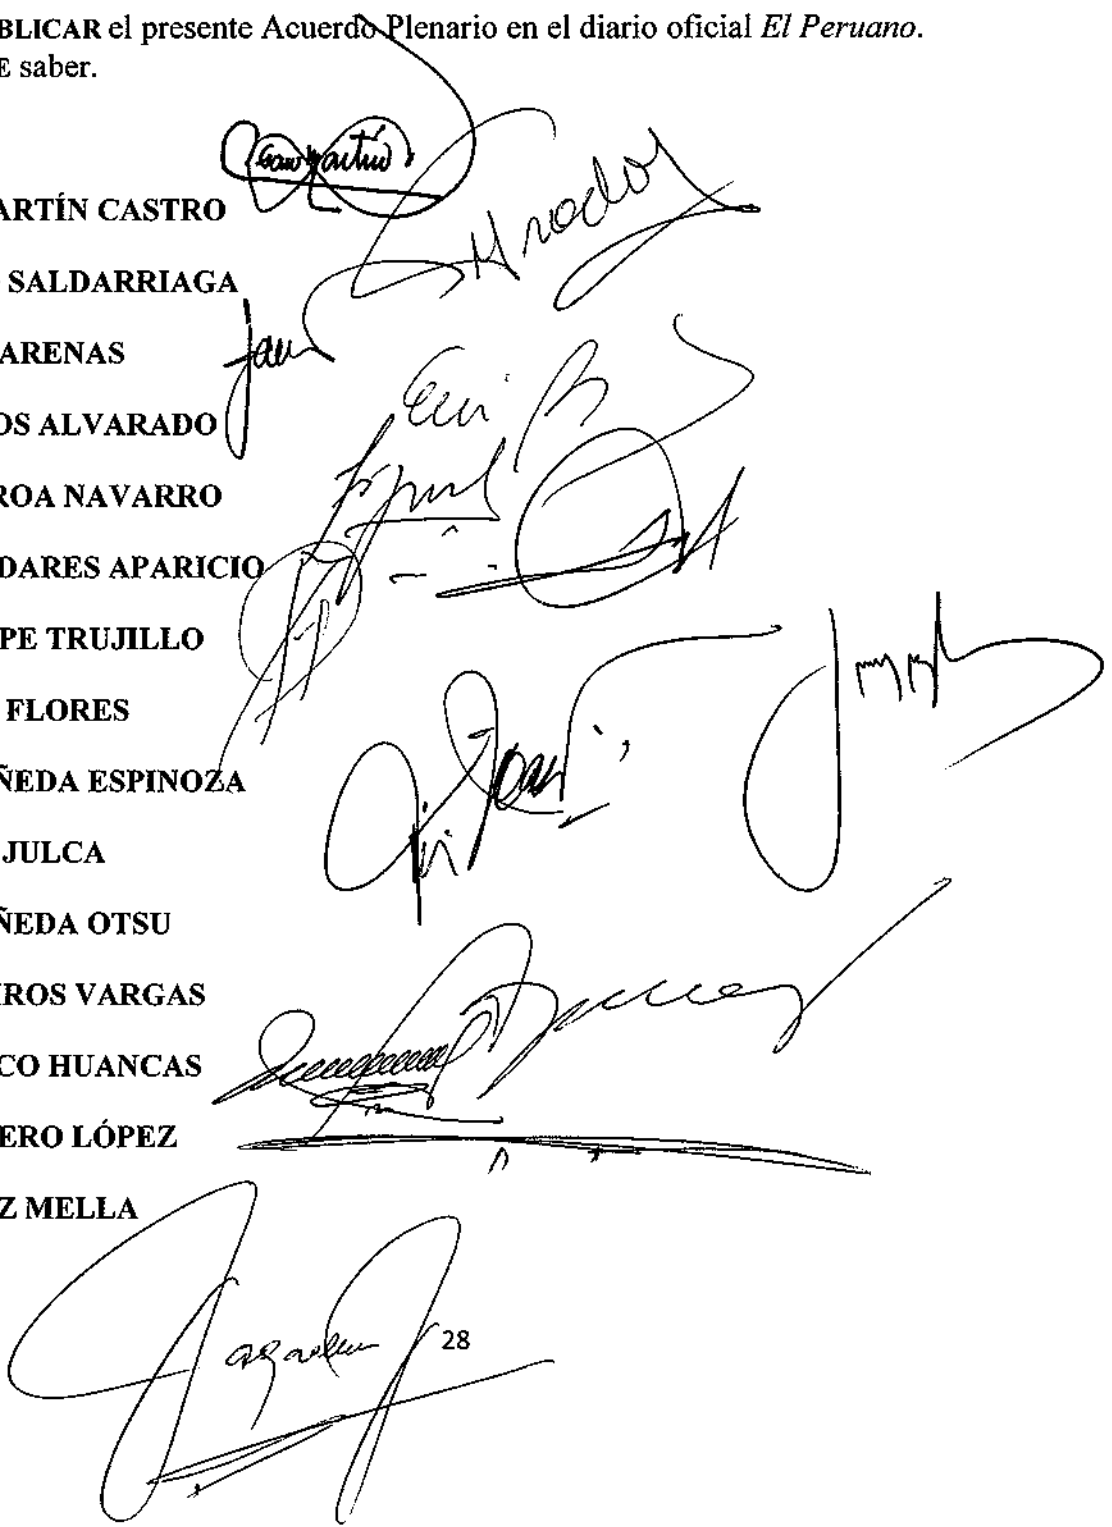 BLICAR el presente Acuerdo Plenario en el diario oficial El Peruano.
E saber.
San Martín
ARTÍN CASTRO
SALDARRIAGA
ARENAS
OS ALVARADO
ROA NAVARRO
DARES APARICIO
PE TRUJILLO
FLORES
ÑEDA ESPINOZA
JULCA
ÑEDA OTSU
IROS VARGAS
CO HUANCAS
ERO LÓPEZ
Z MELLA
28